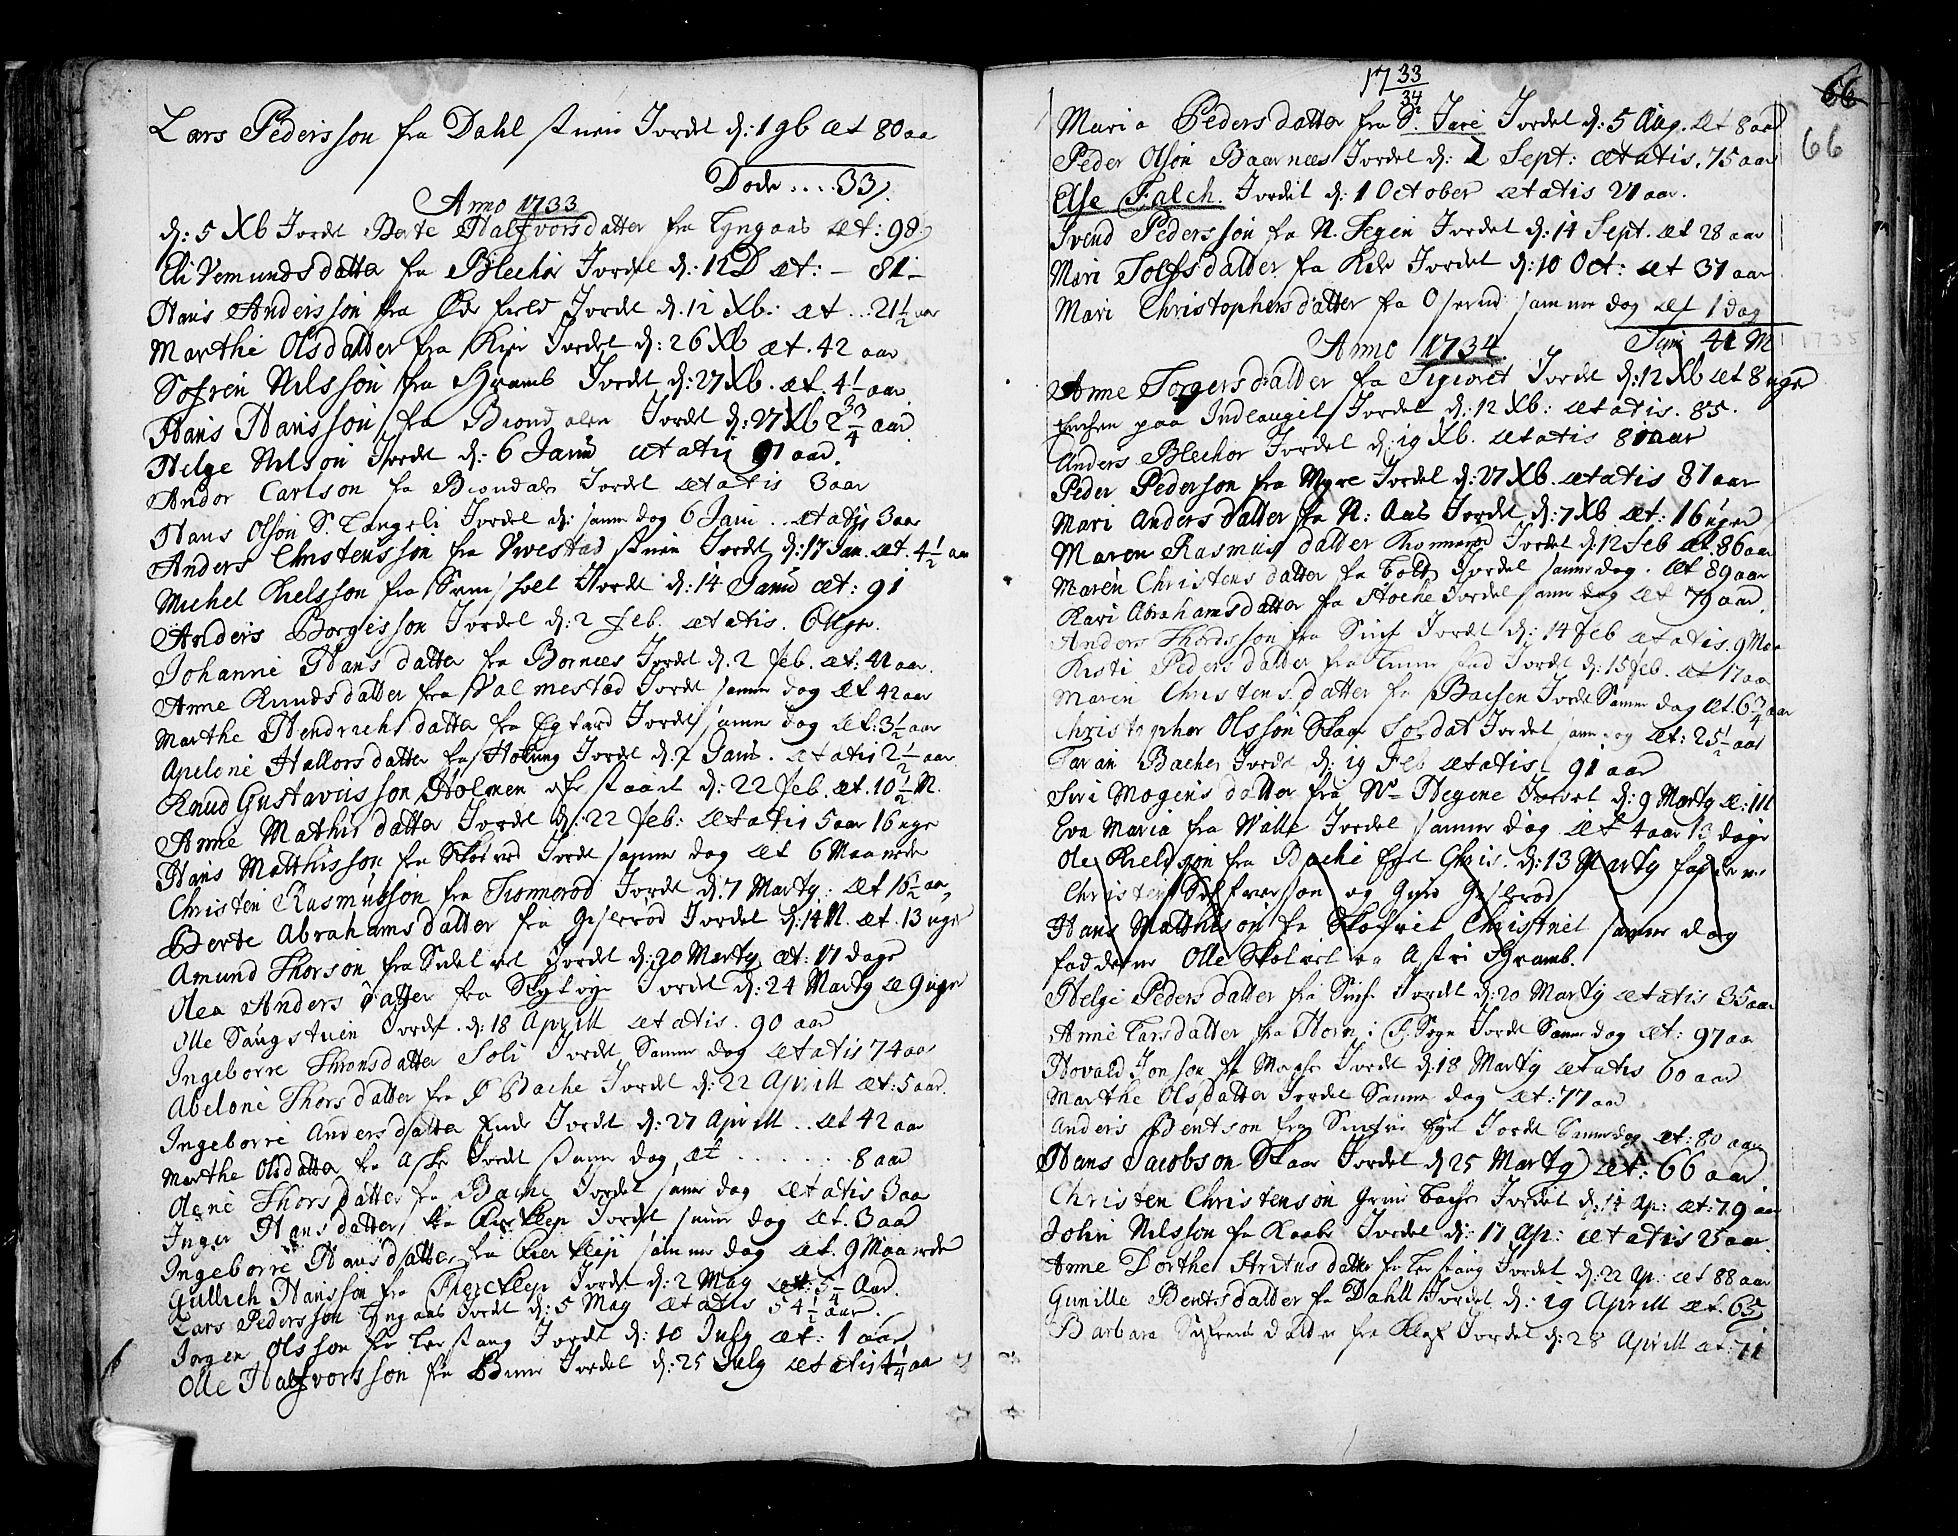 Lars Pedersson fra Dahl stuen Jordet d: 1 9b æt 80 aar
Døde .... 33.
Anno 1733
d: 5 Xb Jordet Berte Halfvorsdatter fra Lyngaas æt: 98
Eli Vemundsdatter fra Blechir Jordet d: 12 D æt: - 81 -
Hans Andersson fra Jordet d. 12 Xb: æt .. 21 1/2 aar
Marthe Olsdatter fra Kier Jordet d: 26 Xb æt. 42 aar
Søfren Nilsson fra Gramb Jordet d: 27 Xb. æt. 4 1/2 aar
Hans Hansson fra Brondalen Jordet d: 27 Xb 2 3/4 aar
Helge Nilson Jordet d: 6 Janu ætatis 91 aar.
Andor Carlson fra Brondalen Jordet ætatis 3 aar
Hans Olson S. Langeli Jordet d: samme dag 6 Jani .. ætatis 3 aar
Anders Christensson fra stuen Jordet d: 17 Jan. æt. 4 1/2 aar
Michel Kielsson fra Jordet d: 14 Janu æt: 91
Anders Borgesson Jordet d: 2 Feb. ætatis. 6 Uger.
Johanne Hansdatter fra Bornees Jordet d. 2 Feb. æt: 42 aar.
Anne Knudsdatter fra Valmestad Jordet samme dag æt 42 aar
Marthe Hendrichsdatter fra Jordet samme dag æt. 3 1/2 aar
Apeloni Hallorsdatter fra Jordet d. 7 ætatis 2 1/2 aar
Knud Gustaviisson Holmen d: 22 Feb. æt. 10 1/2 M.
Anne Mathisdatter Jordet d: 22 Feb: ætatis 5 aar 16 uger
Hans Matthisson fra Jordet samme dag æt 6 Maaneder
Christen Rasmusson fra Jordet d. 7 Marty: æt 16 1/2 aar
Berte Abrahamsdatter fra Gislerød Jordet d: 14 M. æt. 13 uger
Amund Thorson fra Jordet d: 20 Marty æt: 17 dage
Olea Andersdatter fra Jordet d: 24 Marty æ 9 uger
Olle Saugstuen Jordet. d: 18 Aprill ætatis. 90 aar
Ingeborre Thronsdatter Soli Jordet Samme dag ætatis 74 aar
Abeloni Thorsdatter fra Ø Bache Jordet d: 22 Aprill æt: 5 aar.
Ingeborre Andersdatter Ende Jordet d: 27 Aprill .. æt 42 aar
Marthe Olsdatter fra Aske Jordet samme dag æt ....... 8 aar
Olene Thorsdatter fra Bache Jordet samme dag ætatis 3 aar
Inger Hansdatter fra Jordet samme dag æt. 3 aar
Ingeborre Hansdatter fra samme dag æt. 9 Maaneder
Gullich Hansson fra Jordet d: 2 May æt: 5 1/4 Aar.
Lars Pedersson Lyngaas Jordet d: 5 May ætatis 54 1/2 aar.
Jorgen Olsson fra Lerstang Jordet d: 10 July æt: 1 aar
Olle Halfvorsson fra Jordet d: 25 July ætatis 4 1/4 aar
17 33/34
66
66
Maria Pedersdatter fra S. Jare Jordet d: 5 Aug. æt 8 aar
Peder Olson Baarnees Jordet d: 2 Sept: ætatis. 75 aar
Else Falch. Jordet d: 1 October ætatis 21 aar.
Svend Pedersson fra N. Segen Jordet d: 14 Sept. æt 28 aar
Mari Tolfsdatter fra Jordet d: 10 Oct: æt 37 aar
Mari Christophersdatter fra samme dag æt 1 dag
Anno 1734. 41 M
Anne Torgersdatter fra Jordet d: 12 Xb æt 8 uger
Enchen paa Indlauget Jordet d: 12 Xb: ætatis. 85.
Anders Blechor Jordet d: 19 Xb. ætatis 80 aar
Peder Pederson fra Myre Jordet d: 27 Xb. ætatis 81 aar
Mari Andersdatter fra N: Aas Jordet d: 7 Xb æt: 16 uger
Maren Rasmusdatter Jordet d: 12 Feb æt. 86 aar
Maren Christensdatter fra Jordet samme dag. æt 89 aar
Kari Abrahamsdatter fra Jordet samme dag æt 79 aar.
Anders Thordsson fra Jordet d: 14 Feb ætatis. 9 Ma
Kisti Pedersdatter fra Jordet d: 15 Feb. æt 17 aar
Maren Christensdatter fra Bachen Jordet Samme dag æt. 6 3/4 aar
Christopher Olsson Skaar Soldat Jordet samme dag æt: 25 1/2 aar
Taran Bacher Jordet d: 19 Feb ætatis 91 aar
Siri Mogensdatter fra Hegene Jordet d: 9 Marty æ: 111
Eva Maria fra Walle Jordet samme dag æt 4 aar 13 dage
Ole Kieldson fra Bache Chris. d: 13 Marty fadderne
Christen og Gislerød
Hans Matthison fra Skofvel Christnet samme dag
fadderne Olle Skolvel Astri Gramb.
Helge Pedersdatter fra Jordet d: 20 Marty ætatis 35 aar
Anne Larsdatter fra Horn i Sogn Jordet Samme dag æt: 97 aar
Hovald Jonson fra Jordet d: 18 Marty ætatis 60 aar
Marthe Olsdatter Jordet Samme dag æt: 77 aar
Anders Bentson fra Jordet Samme dag æt: 80 aar
Hans Jacobson Skaar Jordet d 25 Marty æt: 66 aar
Christen Christenson Jordet d: 14 Ap: æt: 79 aar
John Nilsson fra Jordet d: 17 Ap: ætatis 25 aar
Anne Dorthe fra Lerstang Jordet d: 22 Ap: æt 88 aar
Gunille Bentsdatter fra Dahll Jordet d: 29 Aprill æt. 65
Barbara datter fra Jordet d: 28 Aprill æt: 71